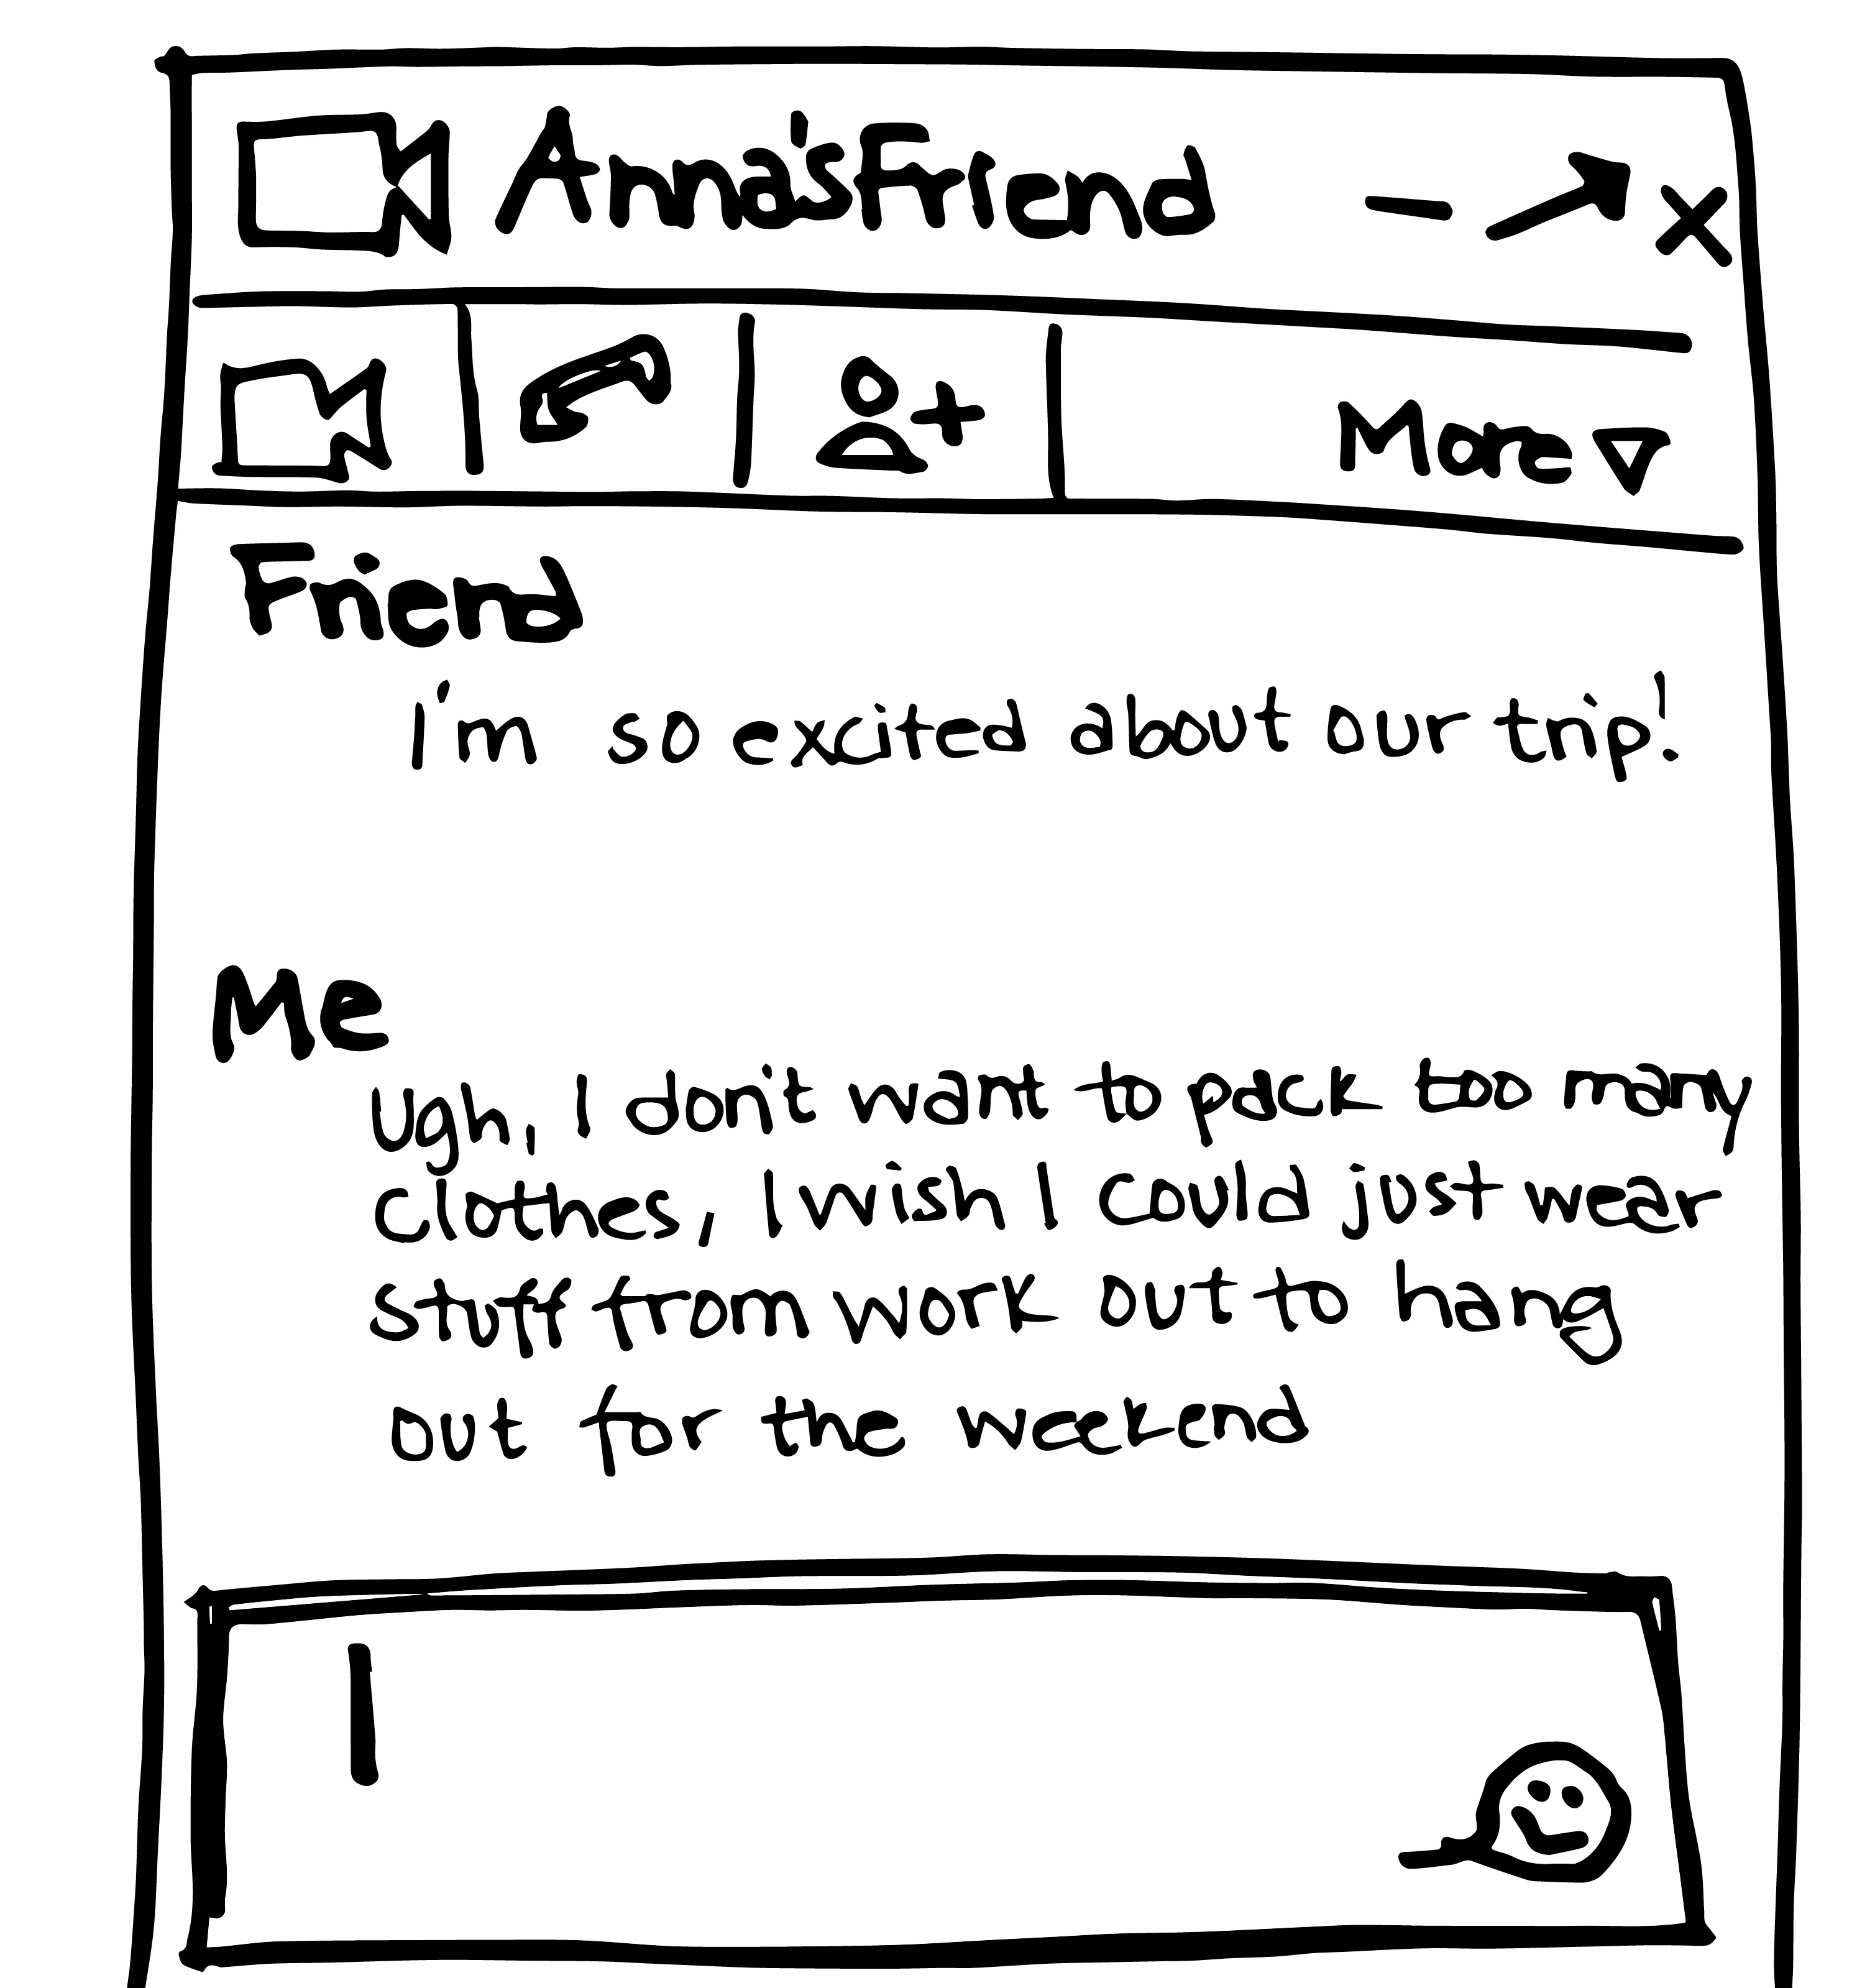 Anna's Friend
More
Friend
I'm so excited about our trip!
Me
Ugh, I don't want to pack too many
clothes, I wish I could just wear
stuff from work out to hang
out for the weekend